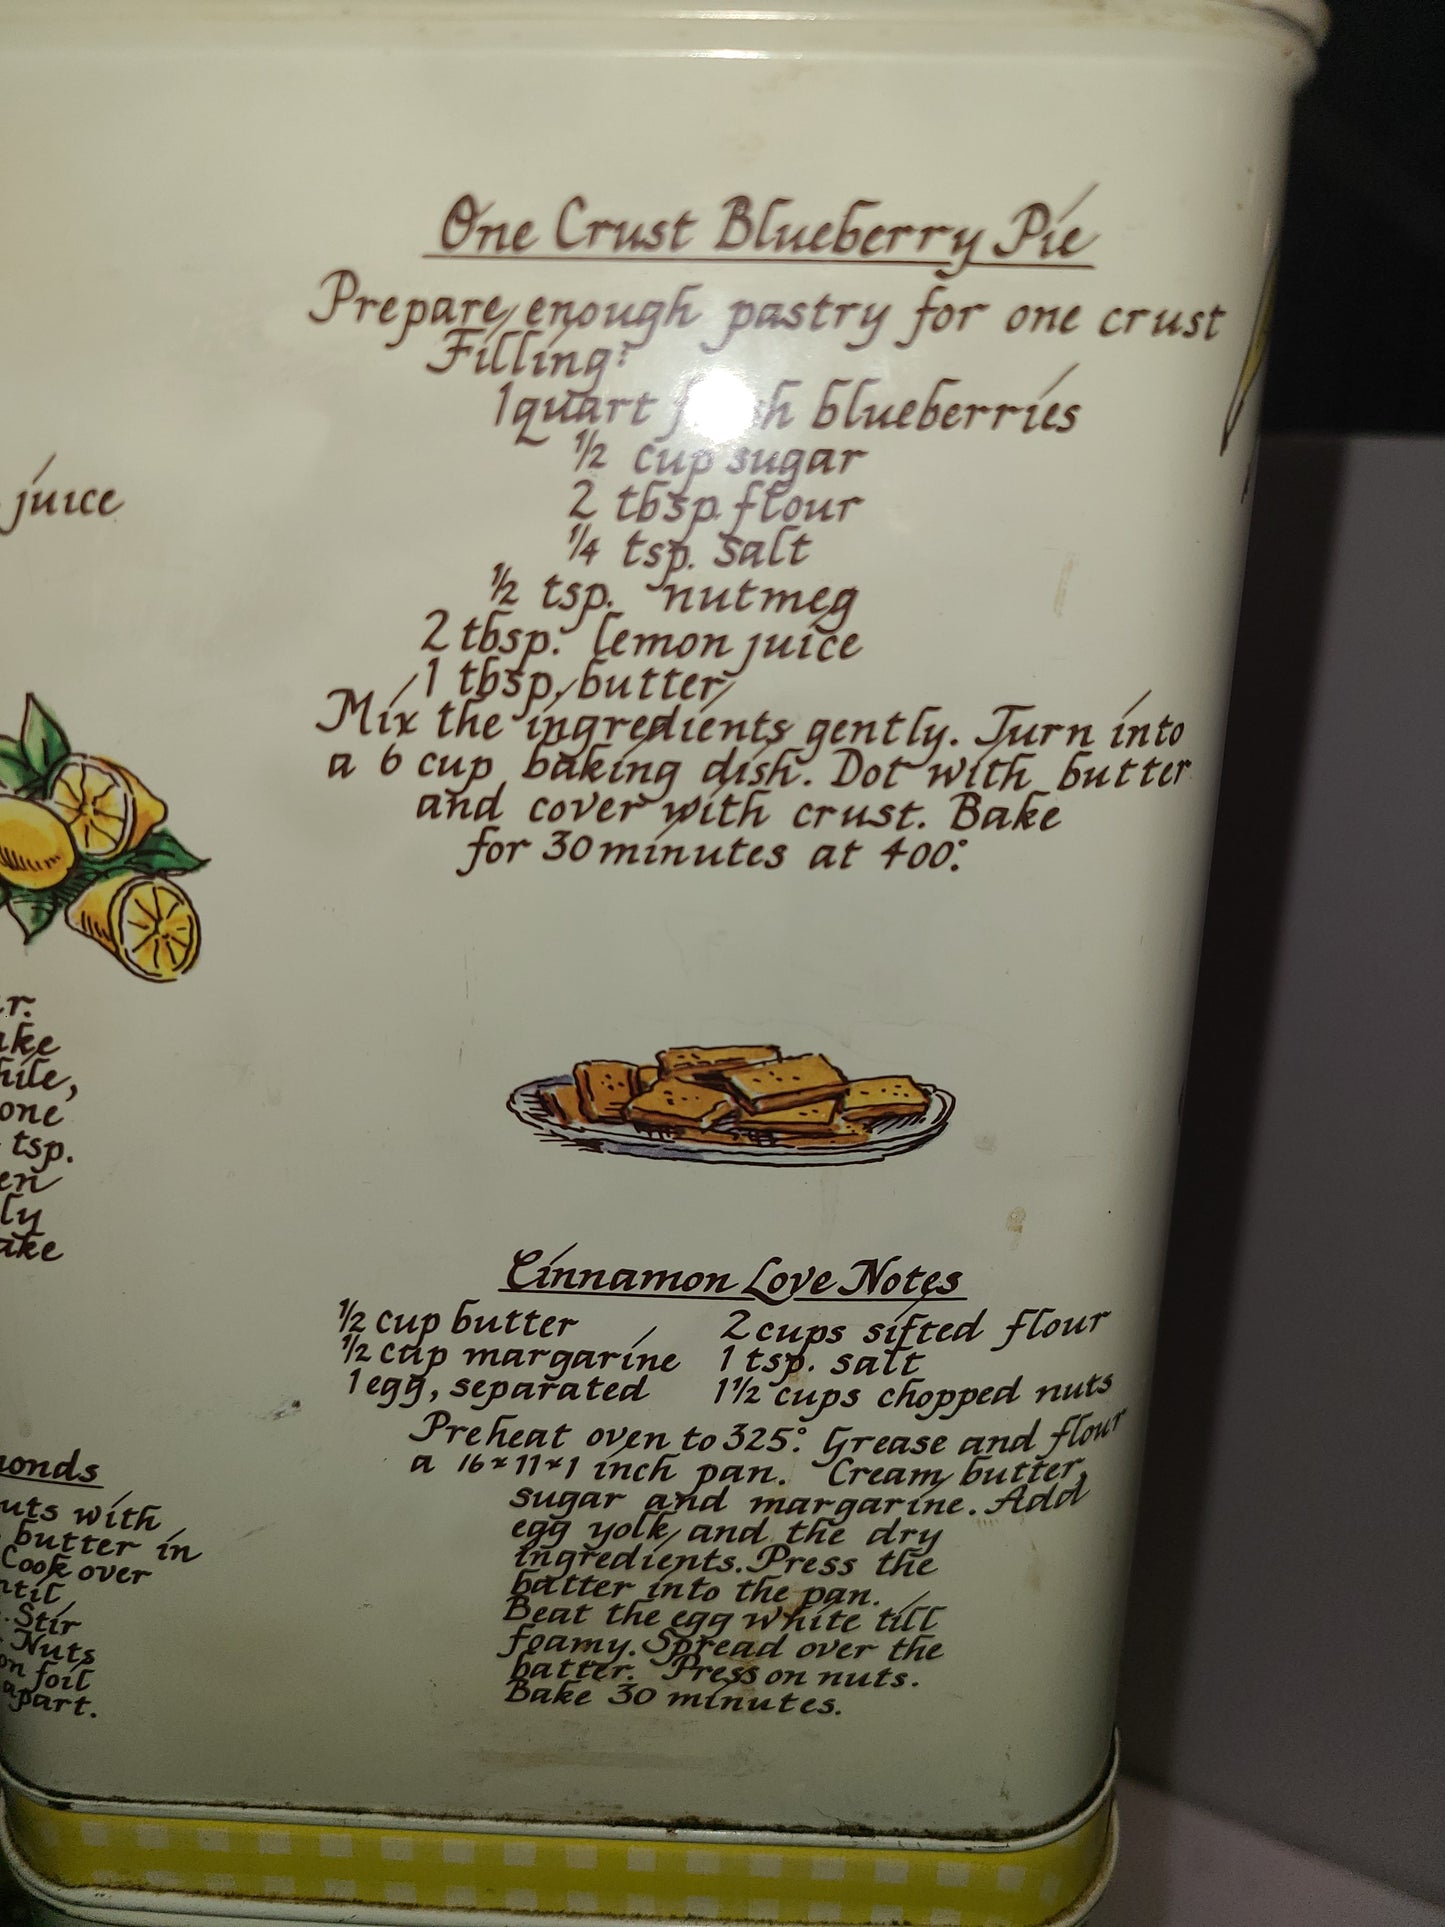 One Crust Blueberry Pie
Prepare enough pastry for one crust
Filling:
1 quart blueberries
1/2 cup sugar
2 tbsp. flour
1/4 tsp. salt
1/2 tsp. nutmeg
2 tbsp. lemon juice
1 tbsp. butter
Mix the ingredients gently. Turn into
a 6 cup baking dish. Dot with butter
and cover with crust. Bake
for 30 minutes at 400°.
Cinnamon Love Notes
1/2 cup butter
1/2 cup margarine
1 egg, separated
2 cups sifted flour
1 tsp. salt
1 1/2 cups chopped nuts
Preheat oven to 325°. Grease and flour
a 16x11x1 inch pan. Cream butter,
sugar and margarine. Add
egg yolk and the dry
ingredients. Press the
batter into the pan.
Beat the egg white till
foamy. Spread over the
batter. Press on nuts.
Bake 30 minutes.
juice
one
tsp.
with
butter in
Cook over
Stir
Nuts
on foil
apart.